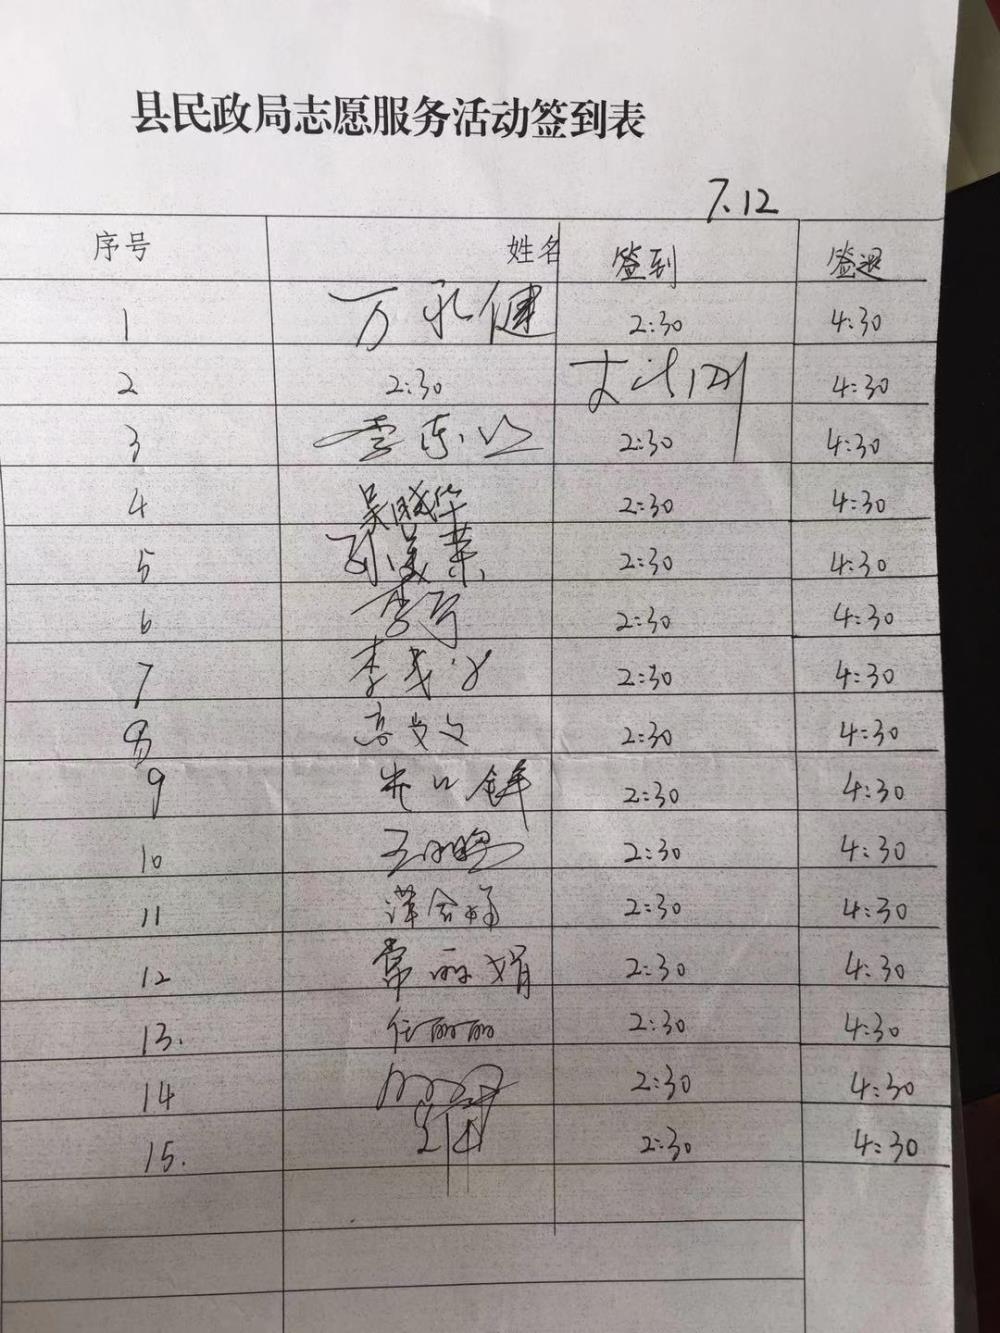 县民政局志愿服务活动签到表
7.12
序号 姓名 签到 签退
1 万永健 2:30 4:30
2 2:30 4:30
3 李 2:30 4:30
4 吴晓华 2:30 4:30
5 孙美荣 2:30 4:30
6 李 2:30 4:30
7 李 2:30 4:30
8 高 文 2:30 4:30
9 2:30 4:30
10 王 2:30 4:30
11 2:30 4:30
12 常丽娟 2:30 4:30
13. 任丽丽 2:30 4:30
14 2:30 4:30
15. 2:30 4:30